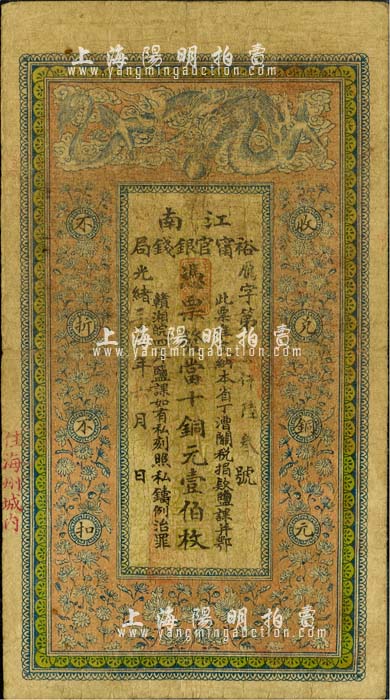 上海陽明拍賣
www.yangmingauction.com
江南
裕甯官銀錢局
收兌銅元
不折不扣
字第
號
此票准完納本省丁漕關稅捐款鹽課并鄂
憑票發當十銅元壹佰枚
贛湘皖四岸鹽課如有私刻照私鑄例治罪
光緒三年月日
住海州城內
上海陽明拍賣
www.yangmingauction.com
上海陽明拍賣
www.yangmingauction.com